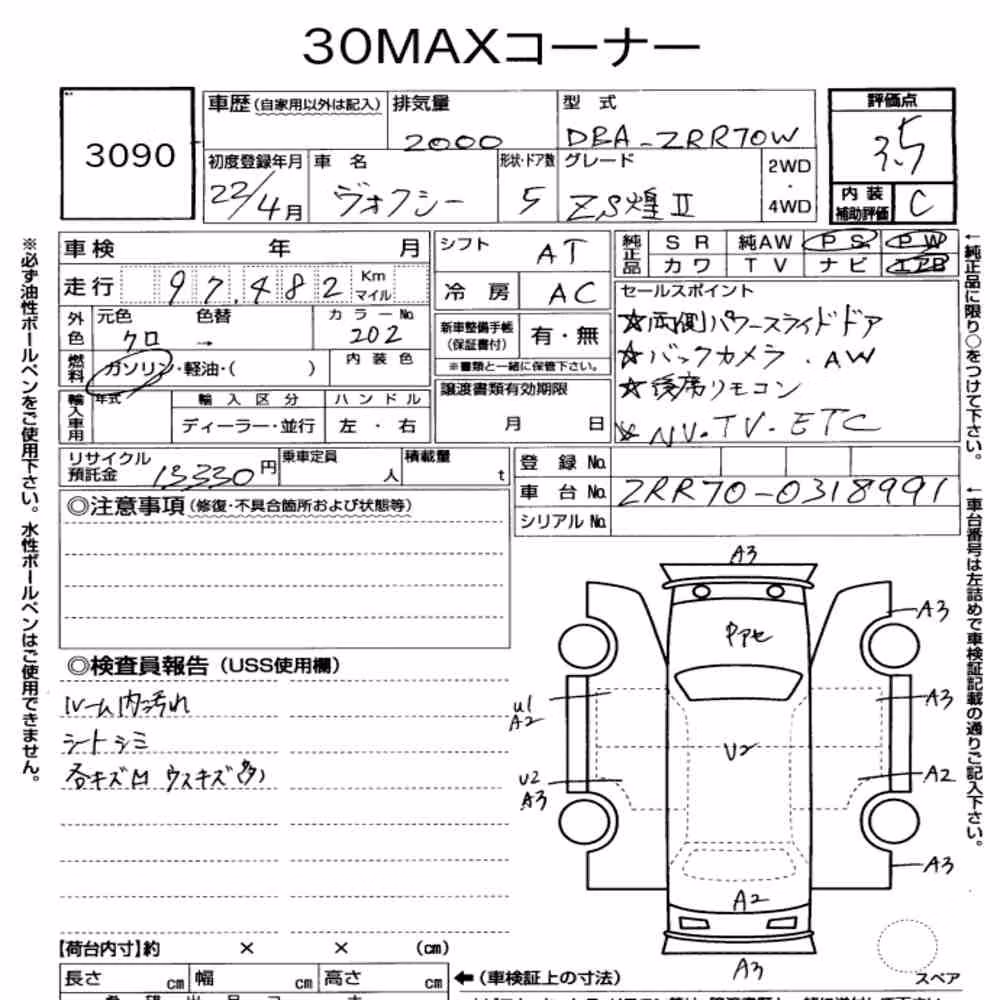 30MAXコーナー
3090
車歴(自家用以外は記入)
排気量
2000
型 式
DBA-ZRR70W
評価点
3.5
初度登録年月
22/4月
車 名
ヴォクシー
形状・ドア数
5
グレード
ZS煌Ⅱ
2WD
・
4WD
内 装
補助評価
C
車検 年 月
シフト
AT
純正品
SR 純AW PS PW
カワ TV ナビ エアB
走行 97,482 Km
マイル
冷 房
AC
セールスポイント
☆両側パワースライドドア
☆バックカメラ.AW
☆後席リモコン
☆NV.TV.ETC
外色
元色
クロ
色替
→
カラーNo
202
新車整備手帳
(保証書付)
有・無
※書類と一緒に保管下さい。
燃料
ガソリン・軽油・( )
内装色
譲渡書類有効期限
月 日
輸入車用
年式
輸入区分
ハンドル
ディーラー・並行
左・右
リサイクル
預託金
13330円
乗車定員
人
積載量
t
登録No.
車台No.
ZRR70-0318991
シリアルNo.
◎注意事項(修復・不具合箇所および状態等)
◎検査員報告(USS使用欄)
ルーム内汚れ
シートシミ
各キズ凹 ウスキズ(多)
A3
A3
U1
A2
A3
U2
U2
A3
A2
A3
A2
A3
スペア
【荷台内寸】約 × × (cm)
長さ cm 幅 cm 高さ cm
←(車検証上の寸法)
※必ず油性ボールペンをご使用下さい。水性ボールペンはご使用できません。
←純正品に限り○をつけて下さい。
←車台番号は左詰めで車検証記載の通りご記入下さい。